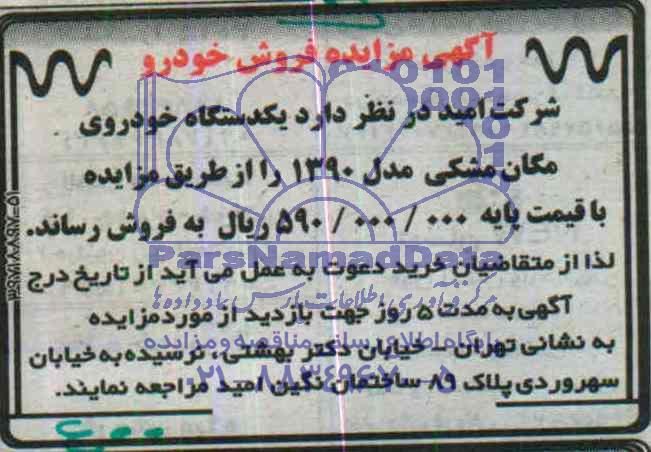 آگهی مزایده فروش خودرو
شرکت امید در نظر دارد یکدستگاه خودروی
مگان مشکی مدل ۱۳۹۰ را از طریق مزایده
با قیمت پایه ۵۹۰/۰۰۰/۰۰۰ ریال به فروش رساند.
لذا از متقاضیان خرید دعوت به عمل می آید از تاریخ درج
آگهی به مدت ۵ روز جهت بازدید از مورد مزایده
به نشانی تهران - خیابان دکتر بهشتی، نرسیده به خیابان
سهروردی پلاک ۸۹ ساختمان نگین امید مراجعه نمایند.
ParsNamadData
مرکز فرآوری اطلاعات پارس نماد داده ها
پایگاه اطلاع رسانی مناقصه و مزایده